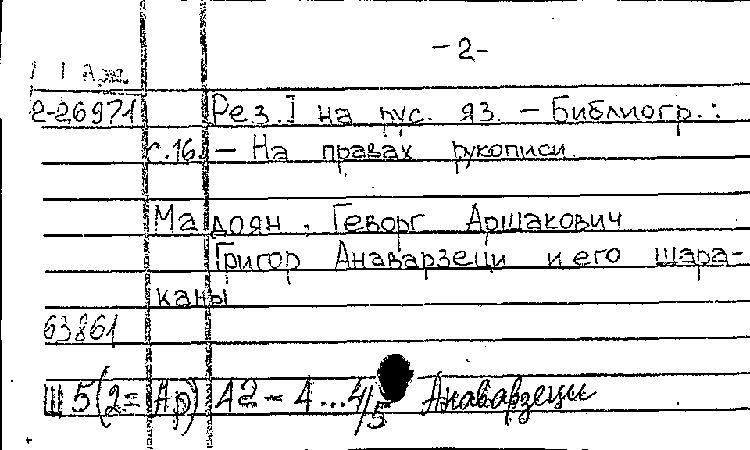 -2-
2-26971 Рез. I на рус. яз. – Библиогр.:
с.16. – На правах рукописи.
Мадоян, Геворг Аршакович
Григор Анаварзеци и его шара-
каны
63861
Ш5(2=Ар) А2-4...4/5 Анаварзеци